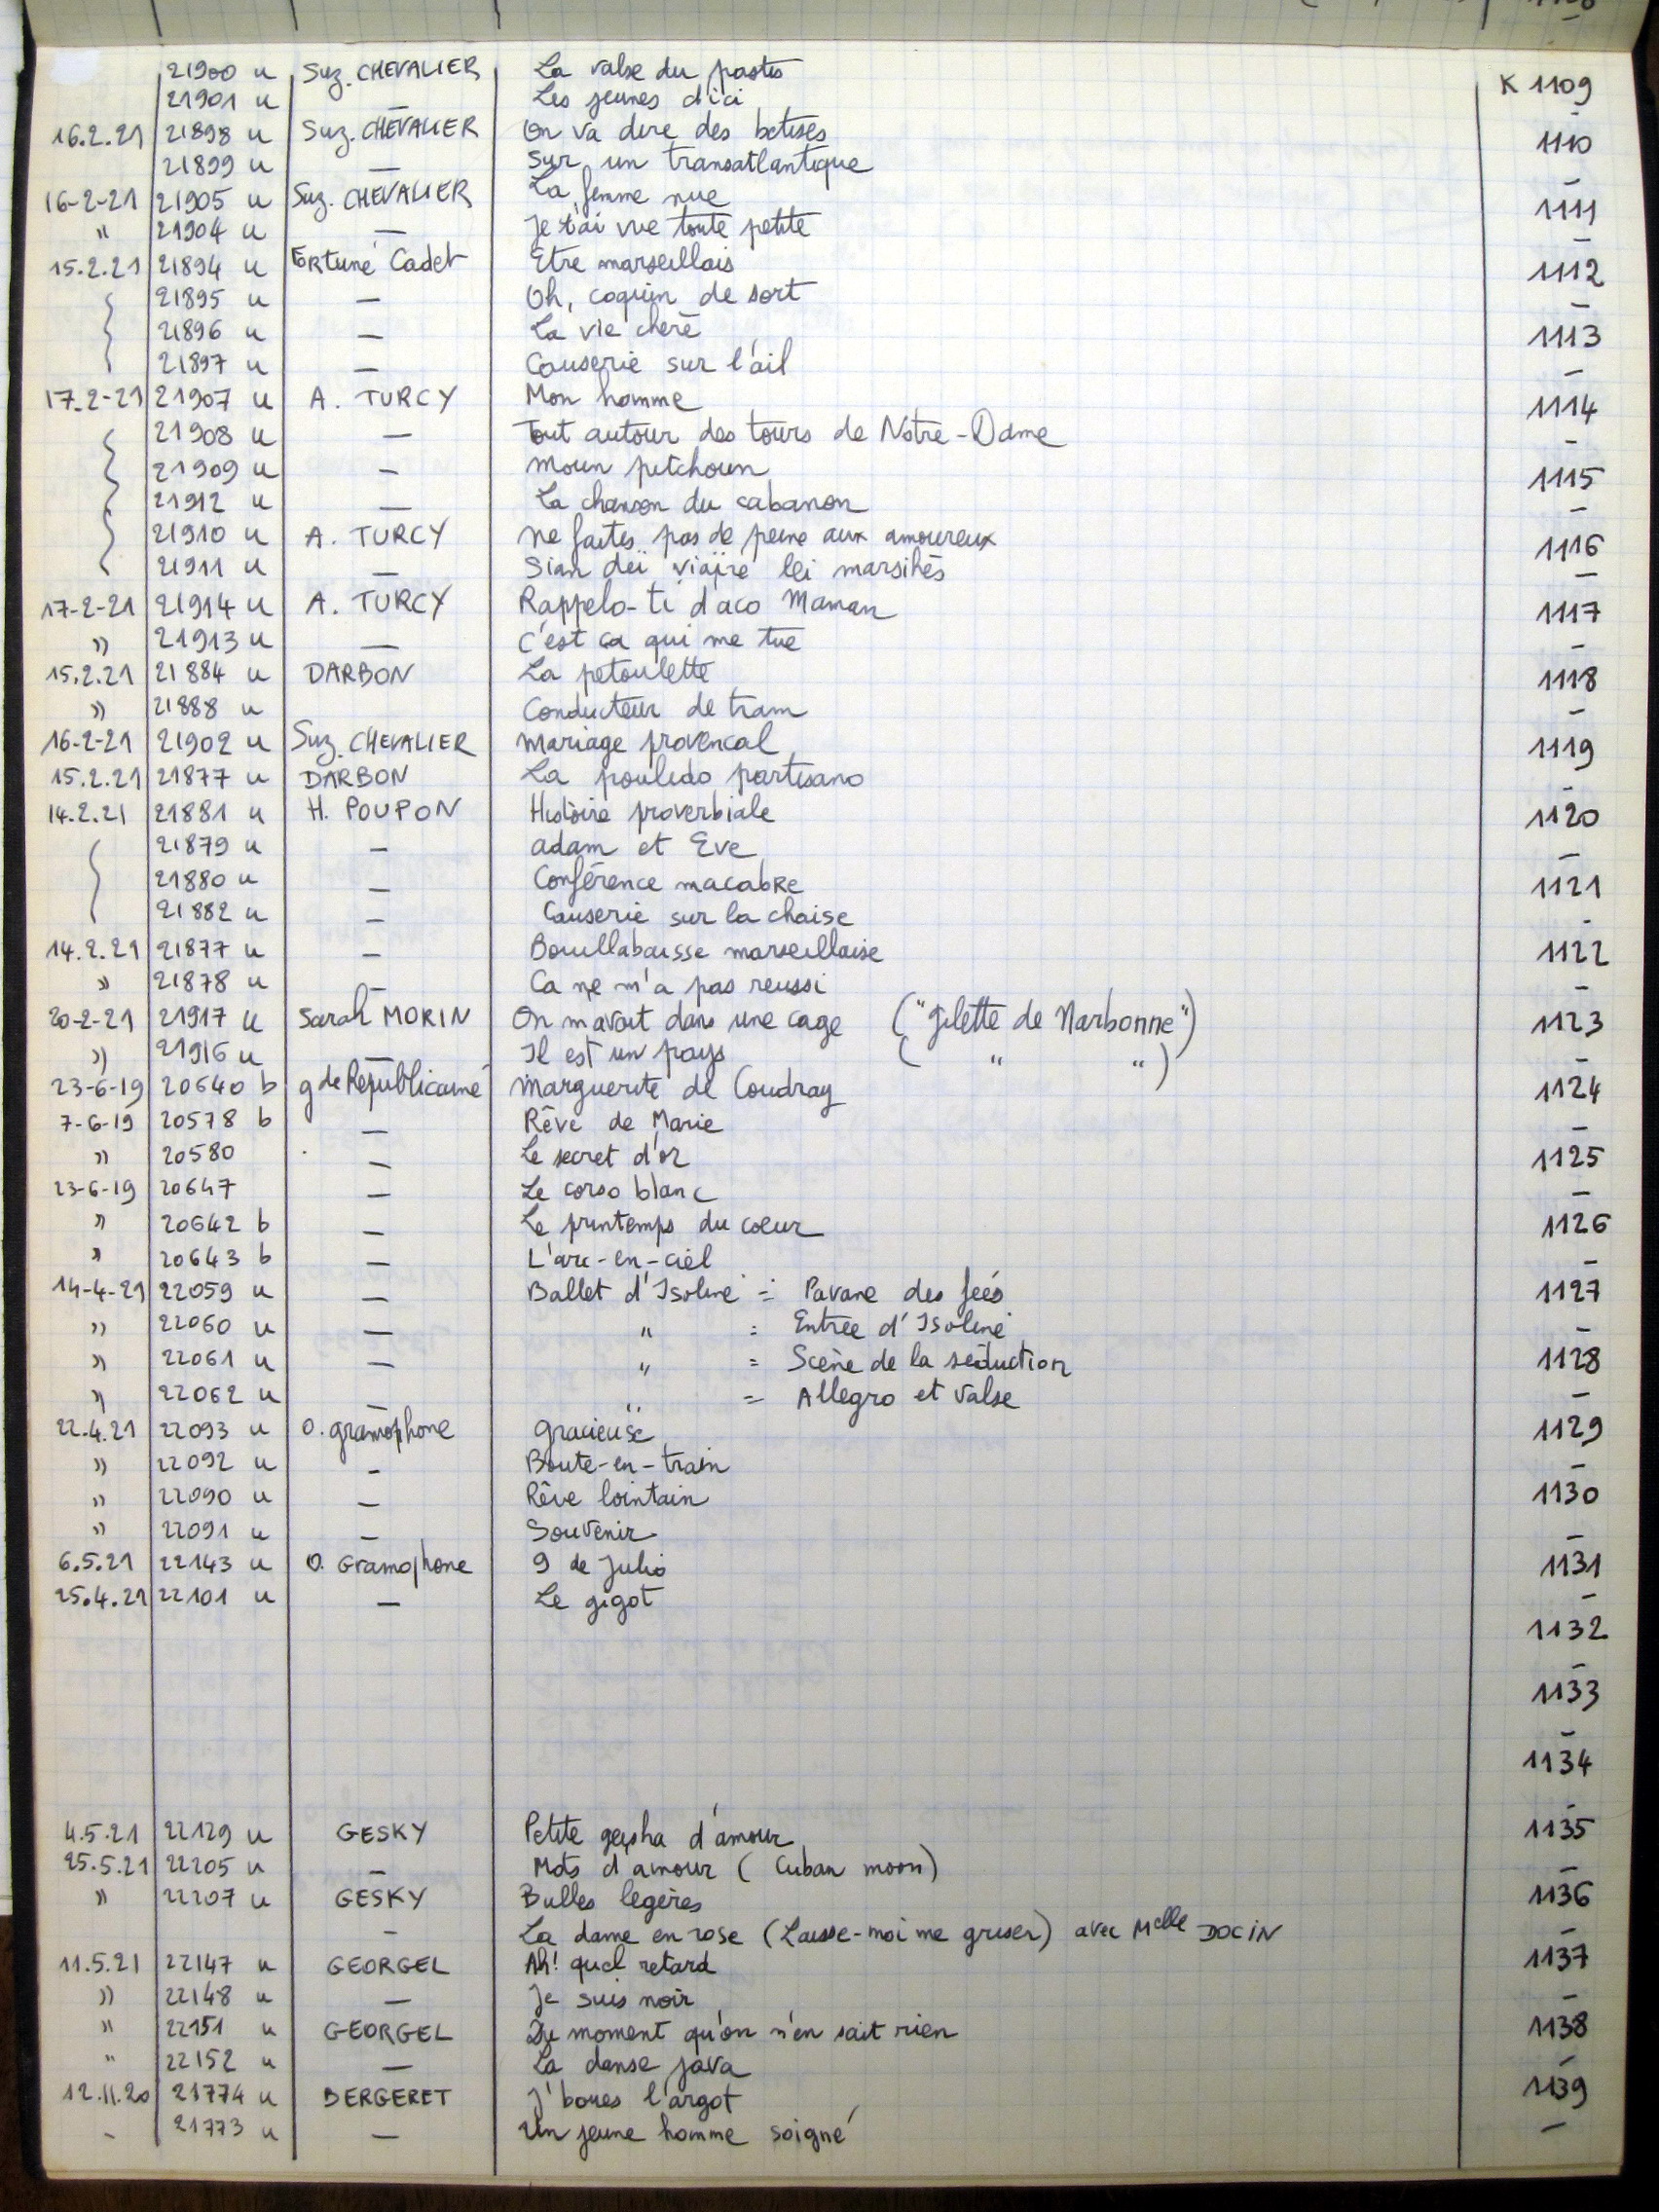 21900 u Suz. CHEVALIER La valse du pastis K 1109
21901 u — Les jeunes d'ici —
16.2.21 21898 u Suz. CHEVALIER On va dire des betises 1110
21899 u — Sur un transatlantique —
16-2-21 21905 u Suz. CHEVALIER La femme nue 1111
" 21904 u — Je t'ai vue toute petite —
15.2.21 21894 u Fortuné Cadet Etre marseillais 1112
21895 u — Oh, coquin de sort —
21896 u — La vie chère 1113
21897 u — Causerie sur l'ail —
17.2-21 21907 u A. TURCY Mon homme 1114
21908 u — Tout autour des tours de Notre-Dame —
21909 u — Moun pitchoun 1115
21912 u — La chanson du cabanon —
21910 u A. TURCY Ne faites pas de peine aux amoureux 1116
21911 u — Sian deï viaïre lei marsihès —
17-2-21 21914 u A. TURCY Rappelo-ti d'aco Maman 1117
" 21913 u — C'est ca qui me tue —
15.2.21 21884 u DARBON La petoulette 1118
" 21888 u Conducteur de tram —
16-2-21 21902 u Suz. CHEVALIER Mariage provencal 1119
15.2.21 21877 u DARBON La poulido partisano —
14.2.21 21881 u H. POUPON Histoire proverbiale 1120
21879 u — adam et Eve —
21880 u — Conférence macabre 1121
21882 u — Causerie sur la chaise —
14.2.21 21877 u — Bouillabaisse marseillaise 1122
" 21878 u — Ca ne m'a pas reussi —
20-2-21 21917 u Sarah MORIN On m'avait dans une cage ("Gilette de Narbonne") 1123
" 21916 u — Il est un pays ( " " ) —
23-6-19 20640 b gde Républicaine Marguerite de Coudray 1124
7-6-19 20578 b — Rêve de Marie —
" 20580 — Le secret d'or 1125
23-6-19 20647 — Le corso blanc —
" 20642 b — Le printemps du coeur 1126
" 20643 b — L'arc-en-ciel —
14-4-21 22059 u — Ballet d'Isoline = Pavane des fées 1127
" 22060 u — " = Entrée d'Isoline —
" 22061 u — " = Scène de la séduction 1128
" 22062 u — " = Allegro et valse —
22.4.21 22093 u O. gramophone Gracieuse 1129
" 22092 u — Boute-en-train —
" 22090 u — Rêve lointain 1130
" 22091 u — Souvenir —
6.5.21 22143 u O. Gramophone 9 de Julio 1131
25.4.21 22101 u — Le gigot —
1132
—
1133
—
1134
—
4.5.21 22129 u GESKY Petite geisha d'amour 1135
25.5.21 22205 u — Mots d'amour (Cuban moon) —
" 22207 u GESKY Bulles legères 1136
— La dame en rose (Laisse-moi me griser) avec Melle DOCIN —
11.5.21 22147 u GEORGEL Ah! quel retard 1137
" 22148 u — Je suis noir —
" 22151 u GEORGEL Du moment qu'on n'en sait rien 1138
" 22152 u — La danse java —
12.11.20 21774 u BERGERET J'boves l'argot 1139
— 21773 u — Un jeune homme soigné —